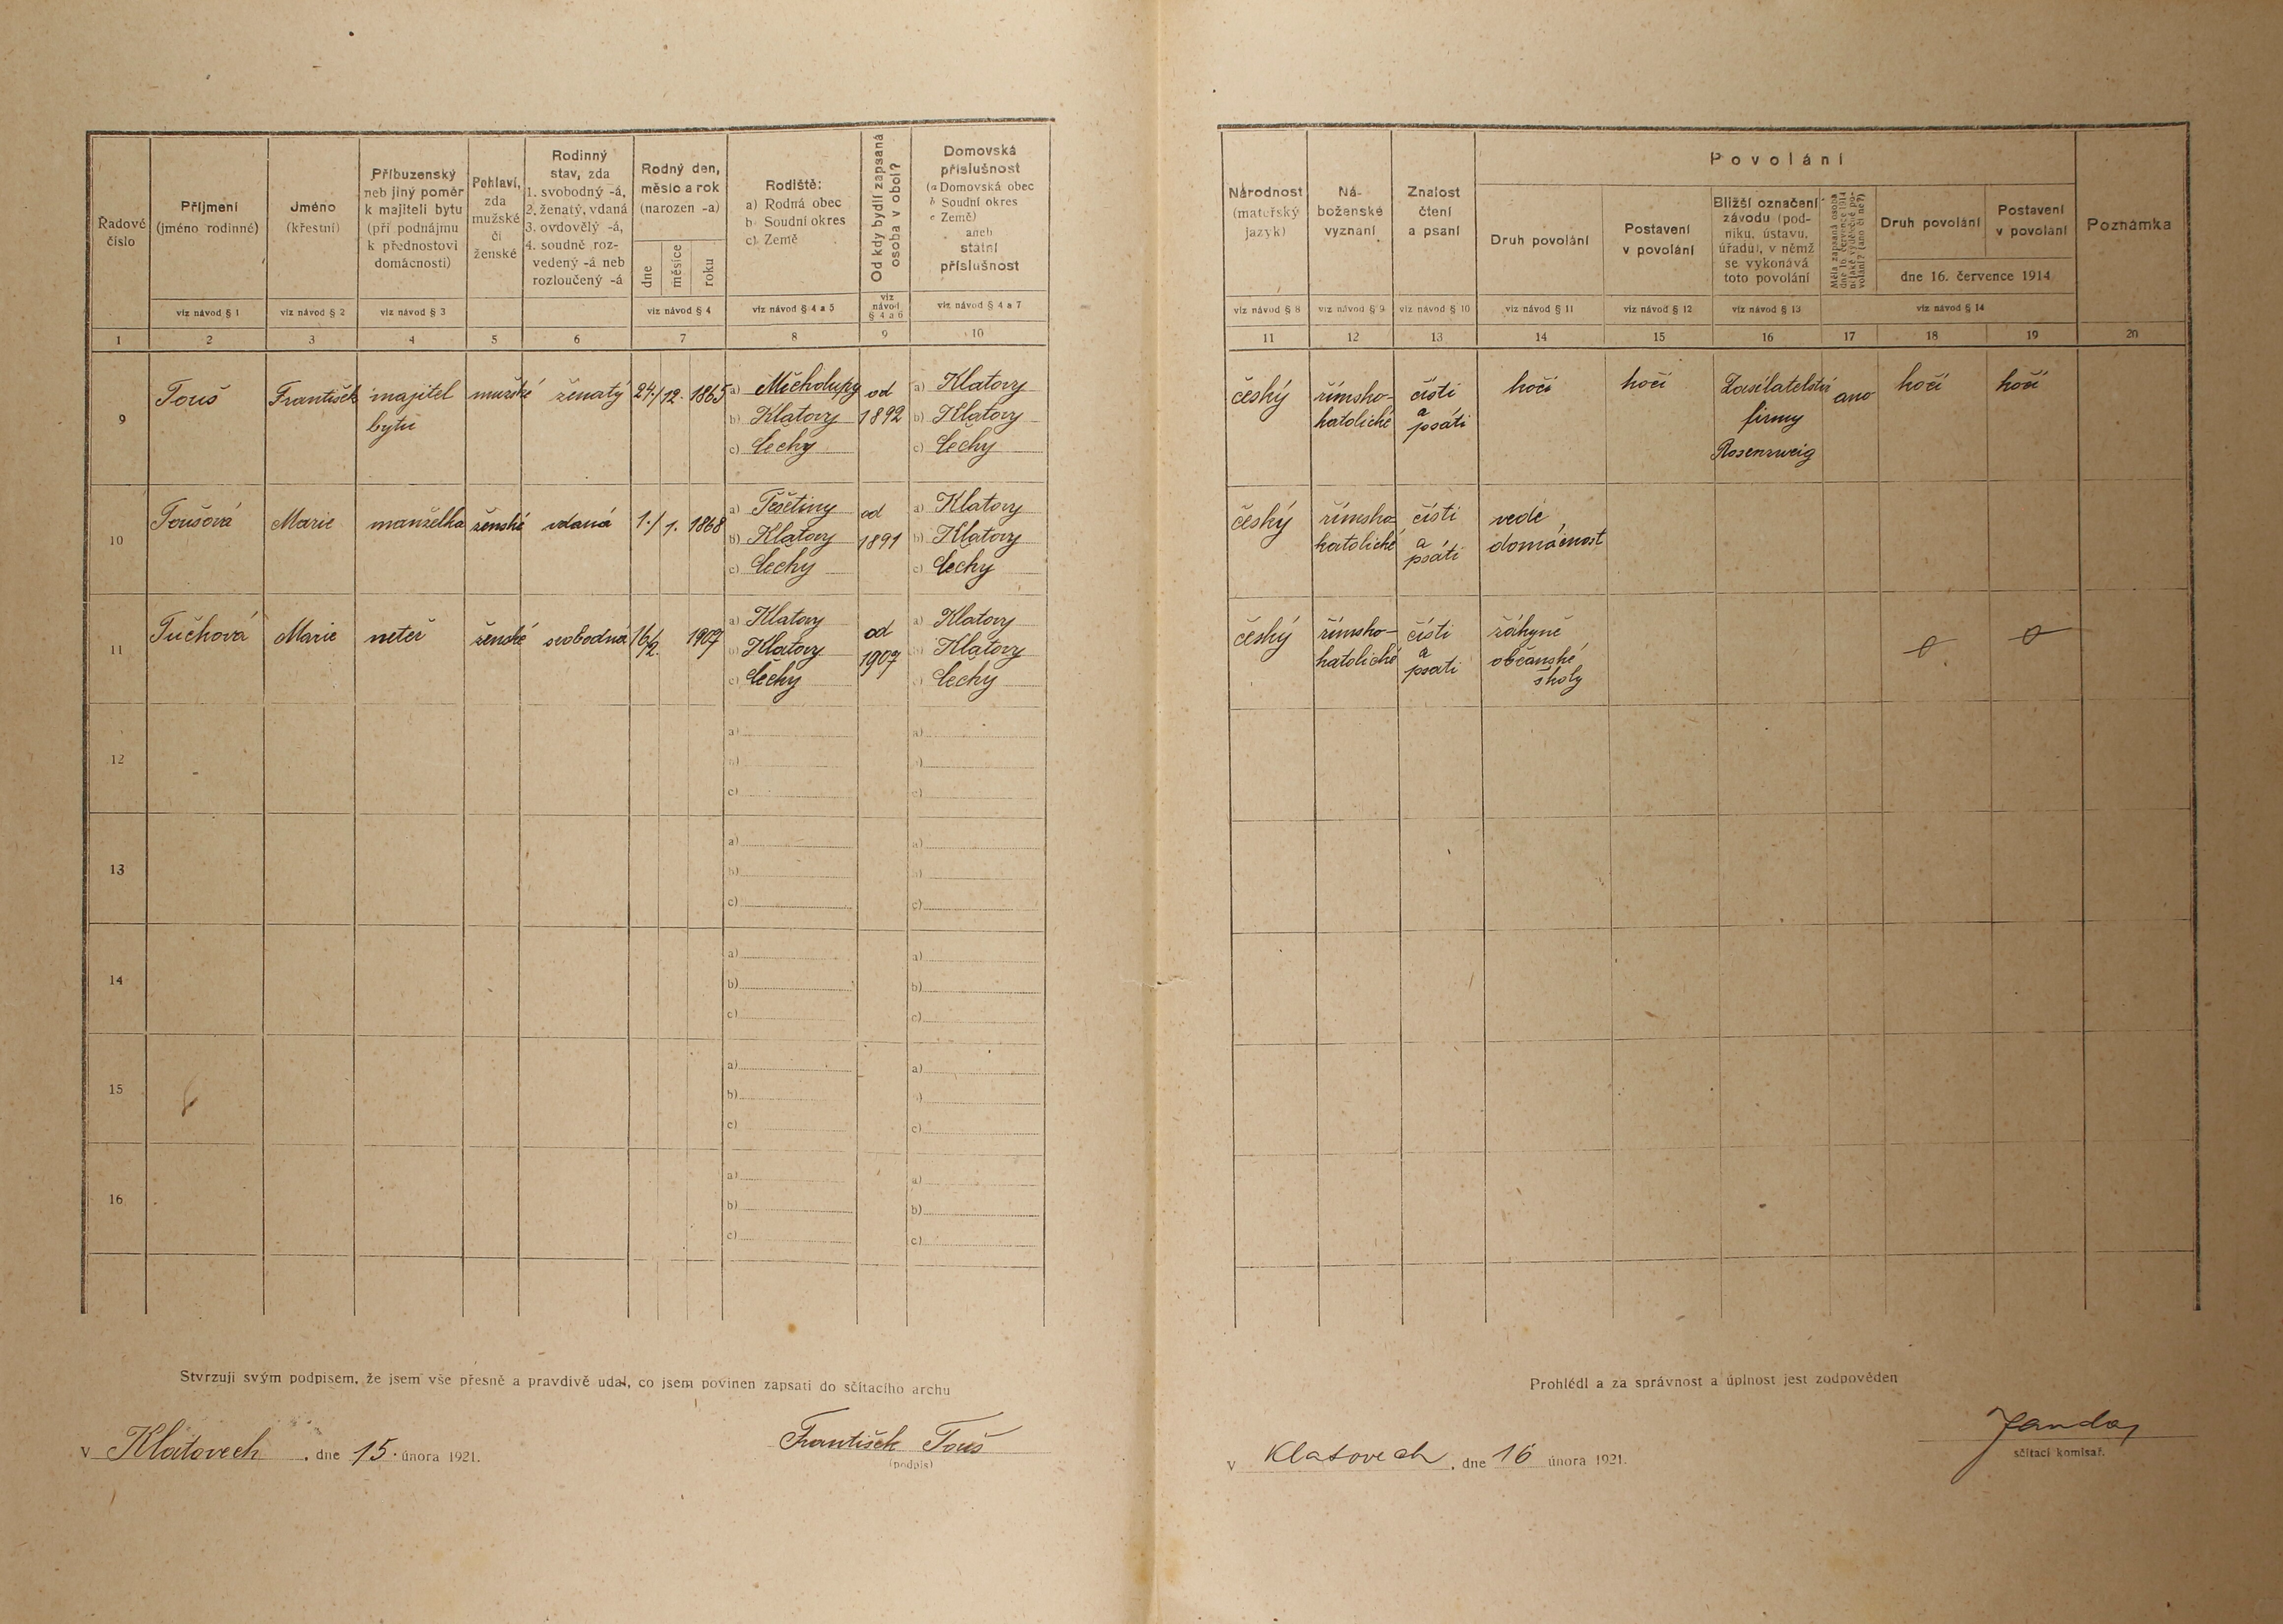 Řadové číslo
Příjmení
(jméno rodinné)
Jméno
(křestní)
Příbuzenský
neb jiný poměr
k majiteli bytu
(při podnájmu
k přednostovi
domácnosti)
Pohlaví,
zda
mužské
či
ženské
Rodinný
stav, zda
1. svobodný -á,
2. ženatý, vdaná
3. ovdovělý -á,
4. soudně roz-
vedený -á neb
rozloučený -á
Rodný den,
měsíc a rok
(narozen -a)
dne
měsíce
roku
Rodiště:
a) Rodná obec
b) Soudní okres
c) Země
Od kdy bydlí zapsaná
osoba v obci?
Domovská
příslušnost
(a Domovská obec
b Soudní okres
c Země)
aneb
státní
příslušnost
viz návod § 1
viz návod § 2
viz návod § 3
viz návod § 4
viz návod § 4 a 5
viz
návod
§ 4 a 6
viz návod § 4 a 7
1 2 3 4 5 6 7 8 9 10
9 Touš František majitel mužské ženatý 24./12. 1865 a) Měcholupy od a) Klatovy
bytu b) Klatovy 1892 b) Klatovy
c) Čechy c) Čechy
10 Toušová Marie manželka ženské vdaná 1./1. 1868 a) Těšetiny od a) Klatovy
b) Klatovy 1891 b) Klatovy
c) Čechy c) Čechy
11 Tučková Marie neteř ženské svobodná 16/2. 1907 a) Klatovy od a) Klatovy
b) Klatovy 1907 b) Klatovy
c) Čechy c) Čechy
12 a) a)
b) b)
c) c)
13 a) a)
b) b)
c) c)
14 a) a)
b) b)
c) c)
15 a) a)
b) b)
c) c)
16 a) a)
b) b)
c) c)
Stvrzuji svým podpisem, že jsem vše přesně a pravdivě udal, co jsem povinen zapsati do sčítacího archu
V Klatovech, dne 15. února 1921.
František Touš
(podpis)
Národnost
(mateřský
jazyk)
Ná-
boženské
vyznání
Znalost
čtení
a psaní
Povolání
Druh povolání
Postavení
v povolání
Bližší označení
závodu (pod-
niku, ústavu,
úřadu), v němž
se vykonává
toto povolání
Měla zapsaná osoba
dne 16. července 1914
nějaké výdělečné po-
volání? (ano či ne?)
Druh povolání
Postavení
v povolání
dne 16. července 1914
Poznámka
viz návod § 8
viz návod § 9
viz návod § 10
viz návod § 11
viz návod § 12
viz návod § 13
viz návod § 14
11 12 13 14 15 16 17 18 19 20
český římsko- čísti kočí kočí Zasílatelství ano kočí kočí
katolické a psáti firmy
Rosenzweig
český římsko- čísti vede
katolické a psáti domácnost
český římsko- čísti žákyně 0 0
katolické a psati občanské
školy
Prohlédl a za správnost a úplnost jest zodpověden
V Klatovech, dne 16 února 1921.
Janda
sčítací komisař.